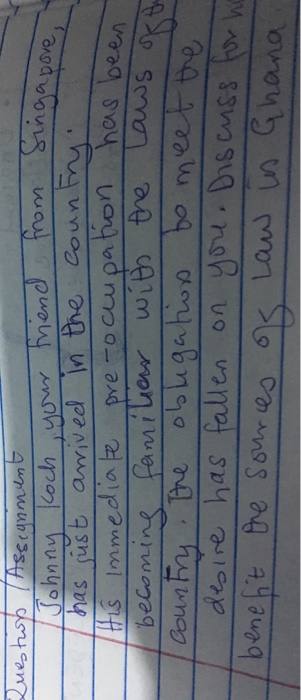 Question / Assignment
Johnny Koch, your friend from Singapore,
has just arrived in the country.
His immediate pre-occupation has been
becoming familiar with the Laws of the
country. The obligation to meet the
desire has fallen on you. Discuss for
benefit the sources of Law in Ghana